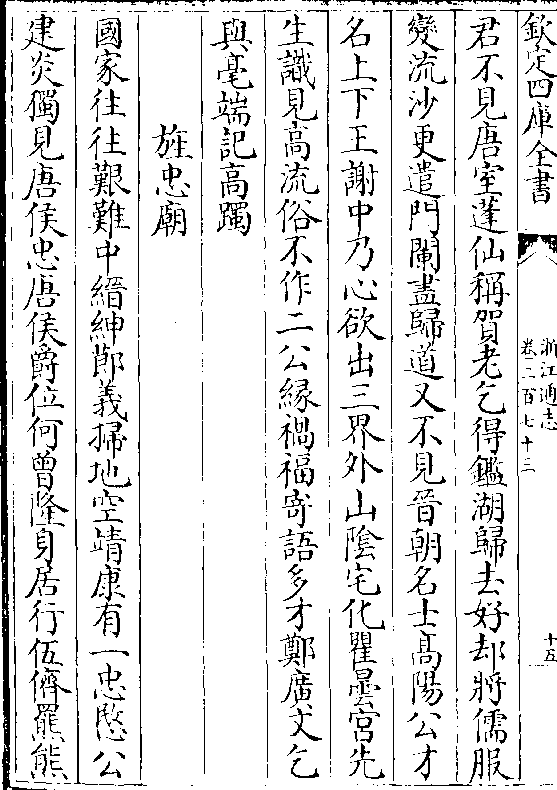 欽定四庫全書
浙江通志
卷二百七十三
十五
君不見唐室蓬仙稱賀老乞得鑑湖歸去好却將儒服
變流沙更遣門闌盡歸道又不見晉朝名士髙陽公才
名上下王謝中乃心欲出三界外山陰宅化瞿曇宫先
生識見高流俗不作二公緣禍福寄語多才鄭廣文乞
與毫端記高躅
旌忠廟
國家往往艱難中縉紳節義掃地空靖康有一忠愍公
建炎獨見唐侯忠唐侯爵位何曽隆身居行伍儕羆熊